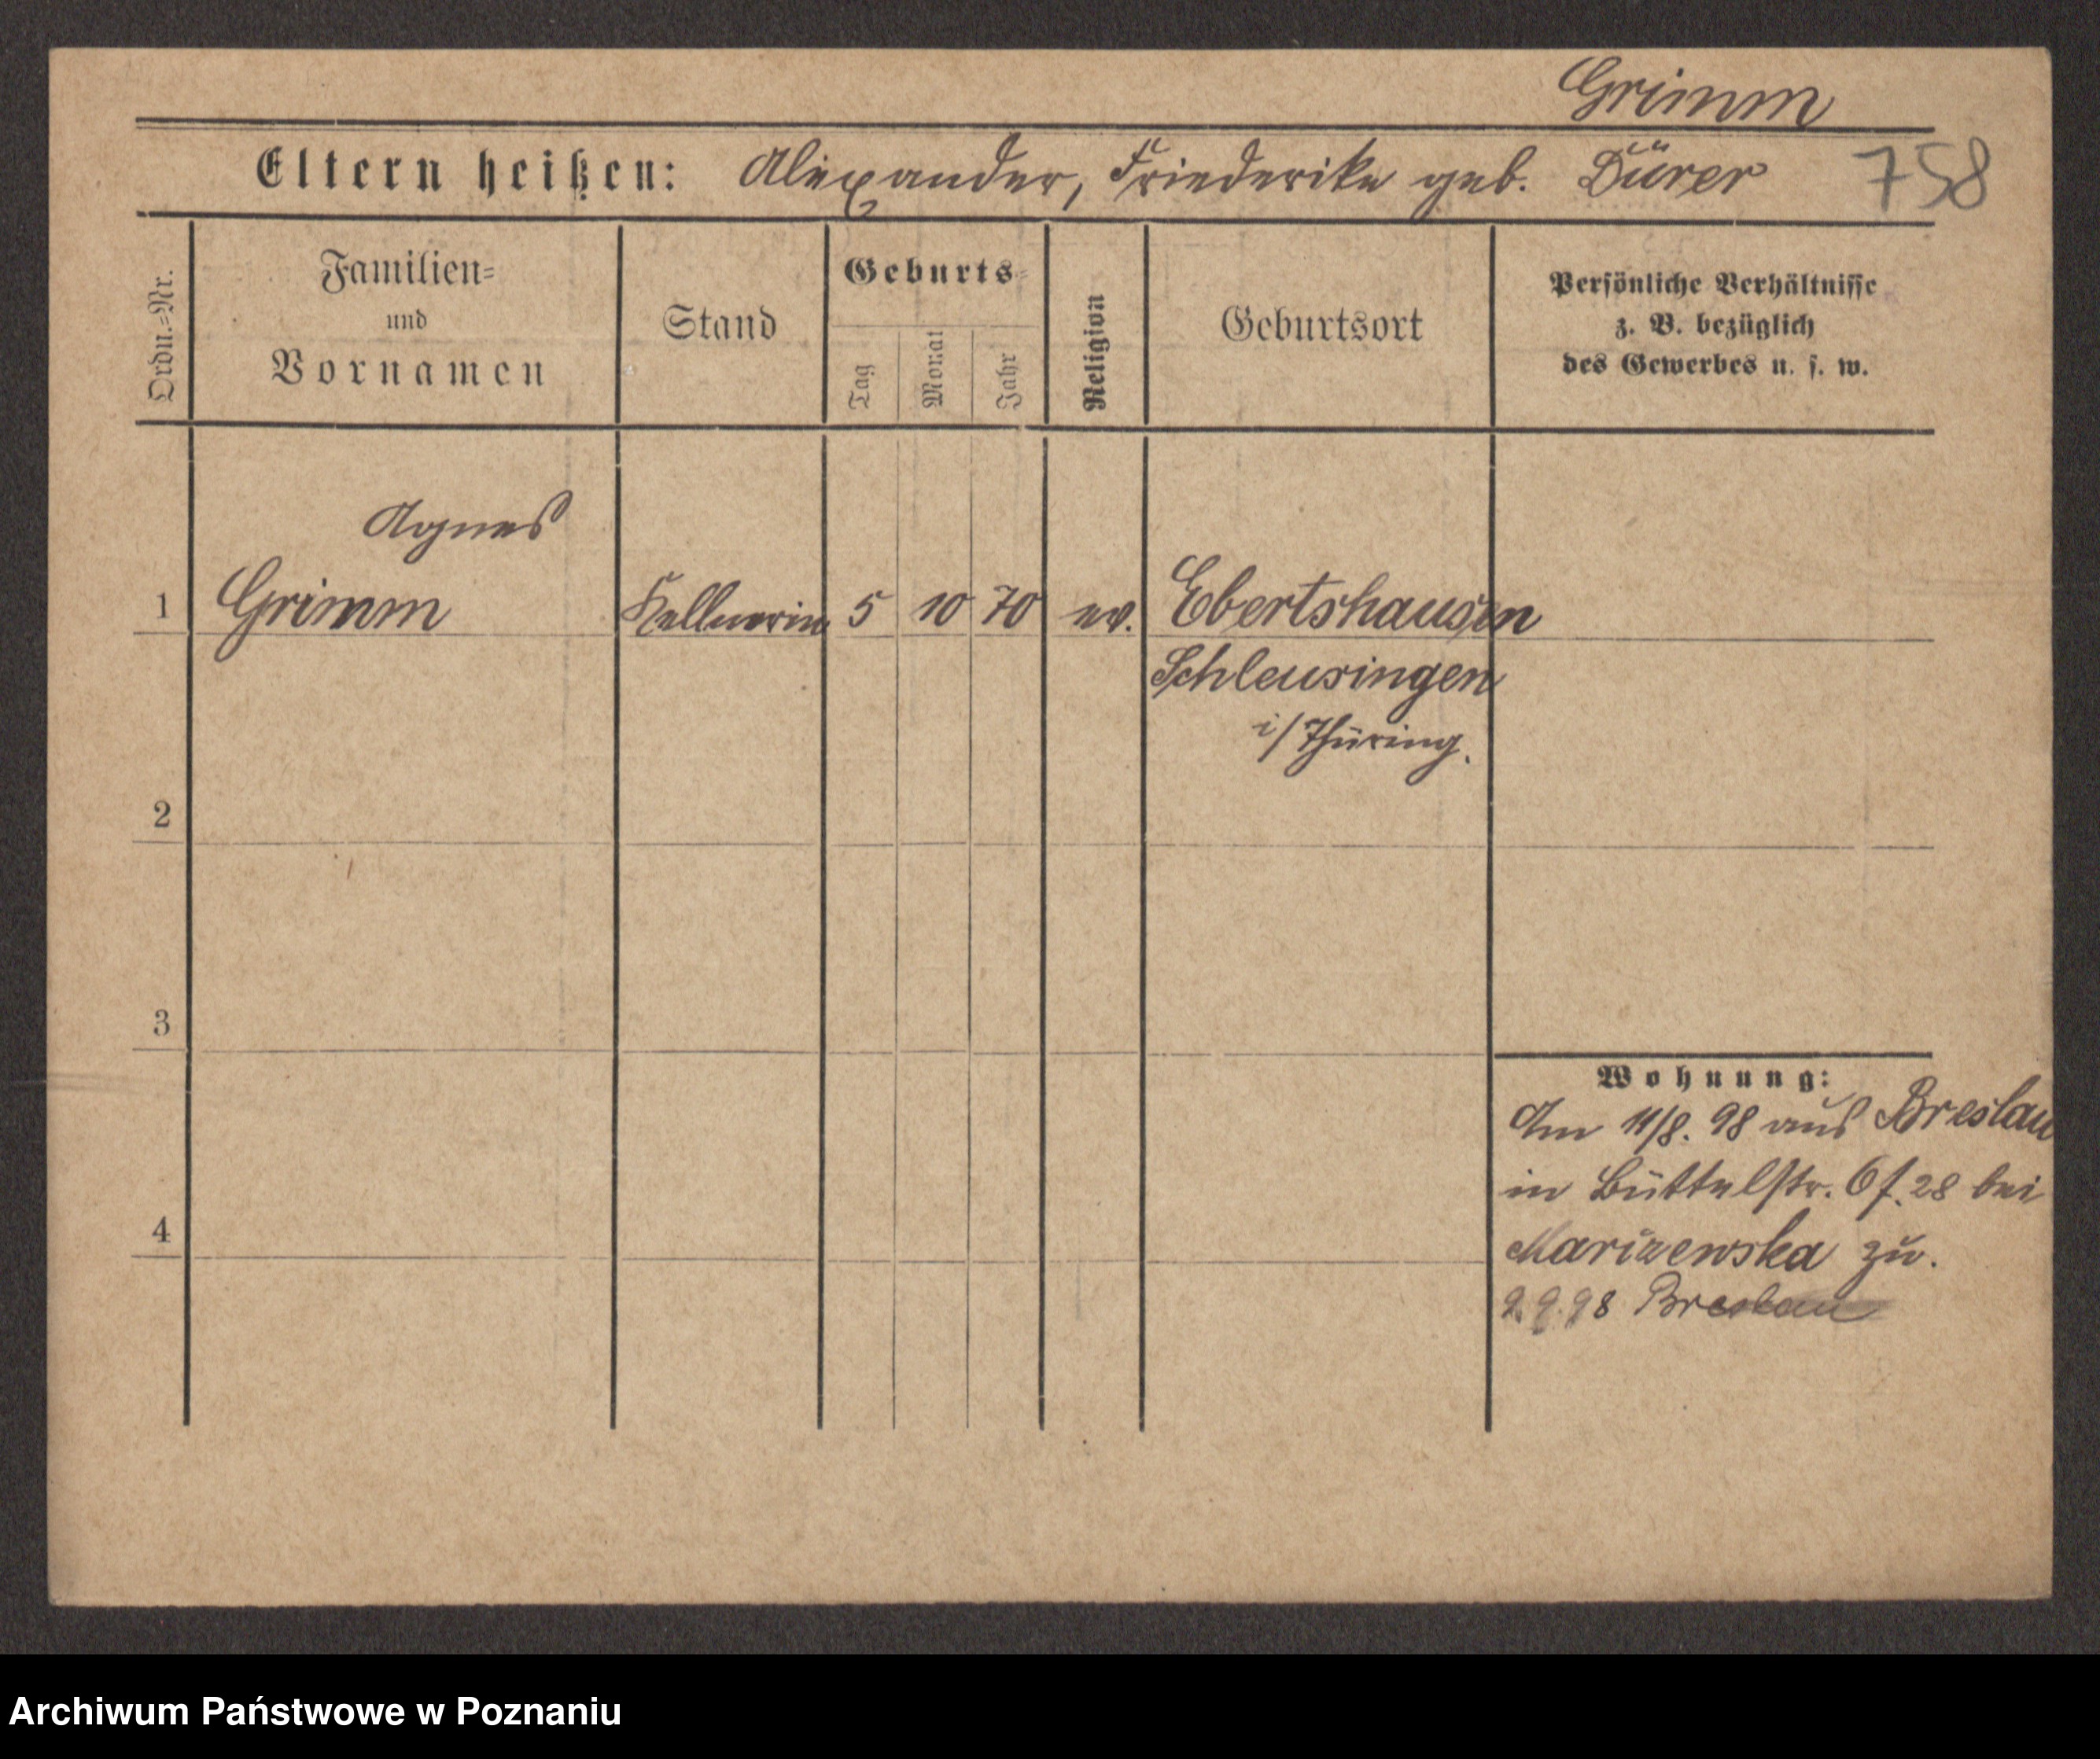 Grimm
Eltern heißen: Alexander, Friederike geb. Dürer 758
Ordn.=Nr.
Familien=
und
Vornamen
Stand
Geburts=
Tag
Monat
Jahr
Religion
Geburtsort
Persönliche Verhältnisse
z. B. bezüglich
des Gewerbes u. s. w.
Agnes
1 Grimm Kellnerin 5 10 70 ev. Ebertshausen
Schleusingen
i/Thüring.
2
3
4
Wohnung:
Am 11/8. 98 aus Breslau
in Büttelstr. 28 bei
zu.
2.9.98 Breslau
Archiwum Państwowe w Poznaniu